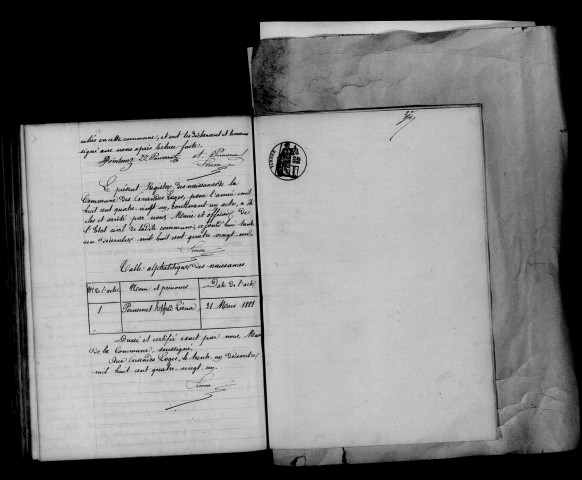 cette commune, et ont les déclarant et témoins
signé avec nous après lecture faite.
Le présent Registre des naissances de la
Commune des Grandes Loges, pour l'année mil
huit cent quatre vingt un, contenant un acte, a été
clos et arrêté par nous Maire et officier de
l'Etat civil de la dite commune, ce jourd'hui trente
un Décembre mil huit cent quatre vingt un.
Table alphabétique des naissances
Nos de l'acte Nom et prénoms Date de l'acte
1 Alfred 21 Mars 1881
Dressé et certifié exact par nous Maire
de la Commune, soussigné.
Aux Grandes Loges, le trente un décembre
mil huit cent quatre vingt un.